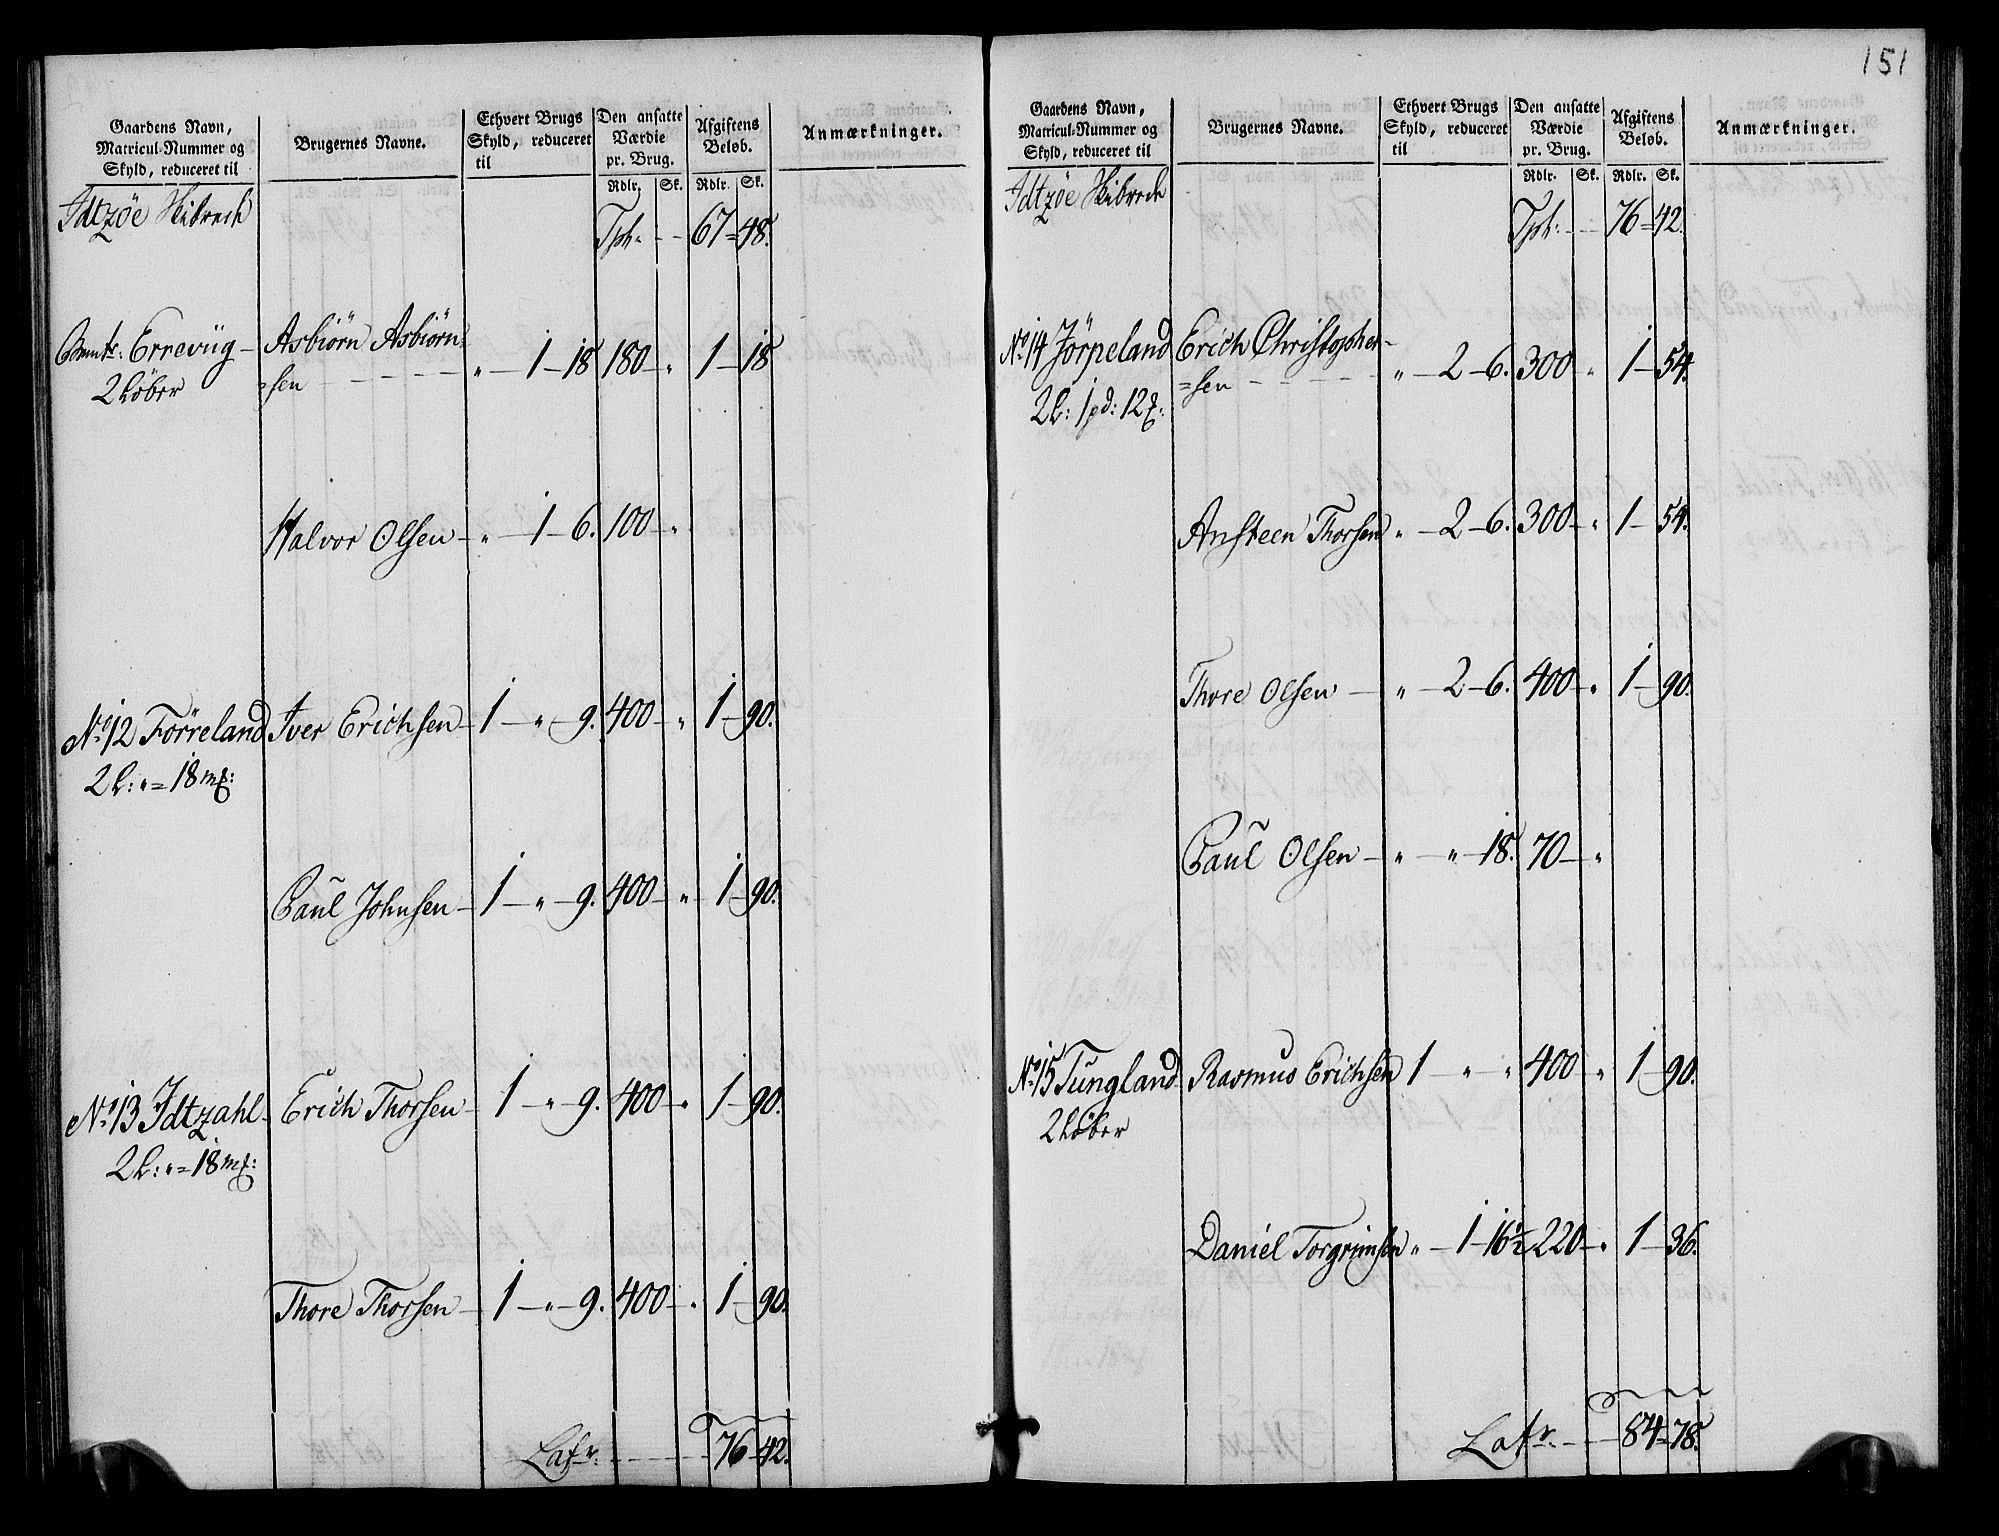 151
Gaardens Navn,
Matricul-Nummer og
Skyld, reduceret til
Brugernes Navne.
Ethvert Brugs
Skyld, reduceret
til
Den ansatte
Værdie
pr. Brug.
Rdlr. Sk.
Afgiftens
Beløb.
Rdlr. Sk.
Anmærkninger.
Idtzøe Skibrede
Tpt: - - 67 = 48.
Errevüg - Asbiørn Asbiørn=
=sen - - - - „ - 1 - 18 180 - „ 1 - 18
2 Løber
Halvor Olsen - „ - 1 - 6. 100 - „
No. 12 Førreland Iver Erichsen - 1 - „ - 9. 400 - „ 1 - 90.
2 L: „ = 18 m#:
Paul Johnsen - 1 - „ - 9. 400 - „ 1 - 90.
No. 13 Idtzahl - Erich Thorsen - 1 - „ - 9. 400 - „ 1 - 90.
2 L: „ = 18 m#:
Thore Thorsen - 1 - „ - 9. 400 - „ 1 - 90.
Latr: - - - - 76 - 42.
Gaardens Navn,
Matricul-Nummer og
Skyld, reduceret til
Brugernes Navne.
Ethvert Brugs
Skyld, reduceret
til
Den ansatte
Værdie
pr. Brug.
Rdlr. Sk.
Afgiftens
Beløb.
Rdlr. Sk.
Anmærkninger.
Idtzøe Skibrede
Tpt: - - 76 = 42.
No. 14 Jørpeland Erich Christopher-
=sen - - - - „ - 2 - 6. 300 „ 1 - 54.
2 L: 1 pd: 12 #:
Ansteen Thorsen „ - 2 - 6. 300 - „ 1 - 54.
Thore Olsen - „ - 2 - 6. 400 - „ 1 - 90.
Paul Olsen - „ - „ - 18. 70 - „
No. 15 Tungland Rasmus Erichsen 1 - „ „ 400 „ 1 - 90.
2 Løber
Daniel Torgrimsen „ - 1 - 16½ - 220 - „ 1 - 36.
Latr: - - - 84 = 78.